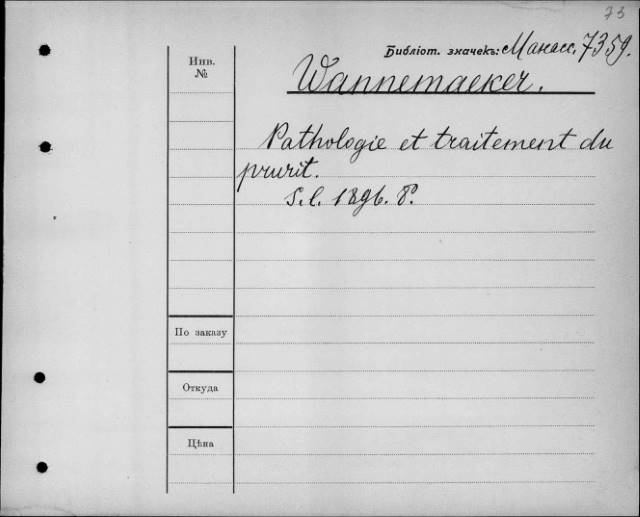 73
Библіот. значекъ: Манасс. 7359.
Инв.
№
Wannemaeker.
Pathologie et traitement du
prurit.
S.l. 1896. 8°.
По заказу
Откуда
Цѣна